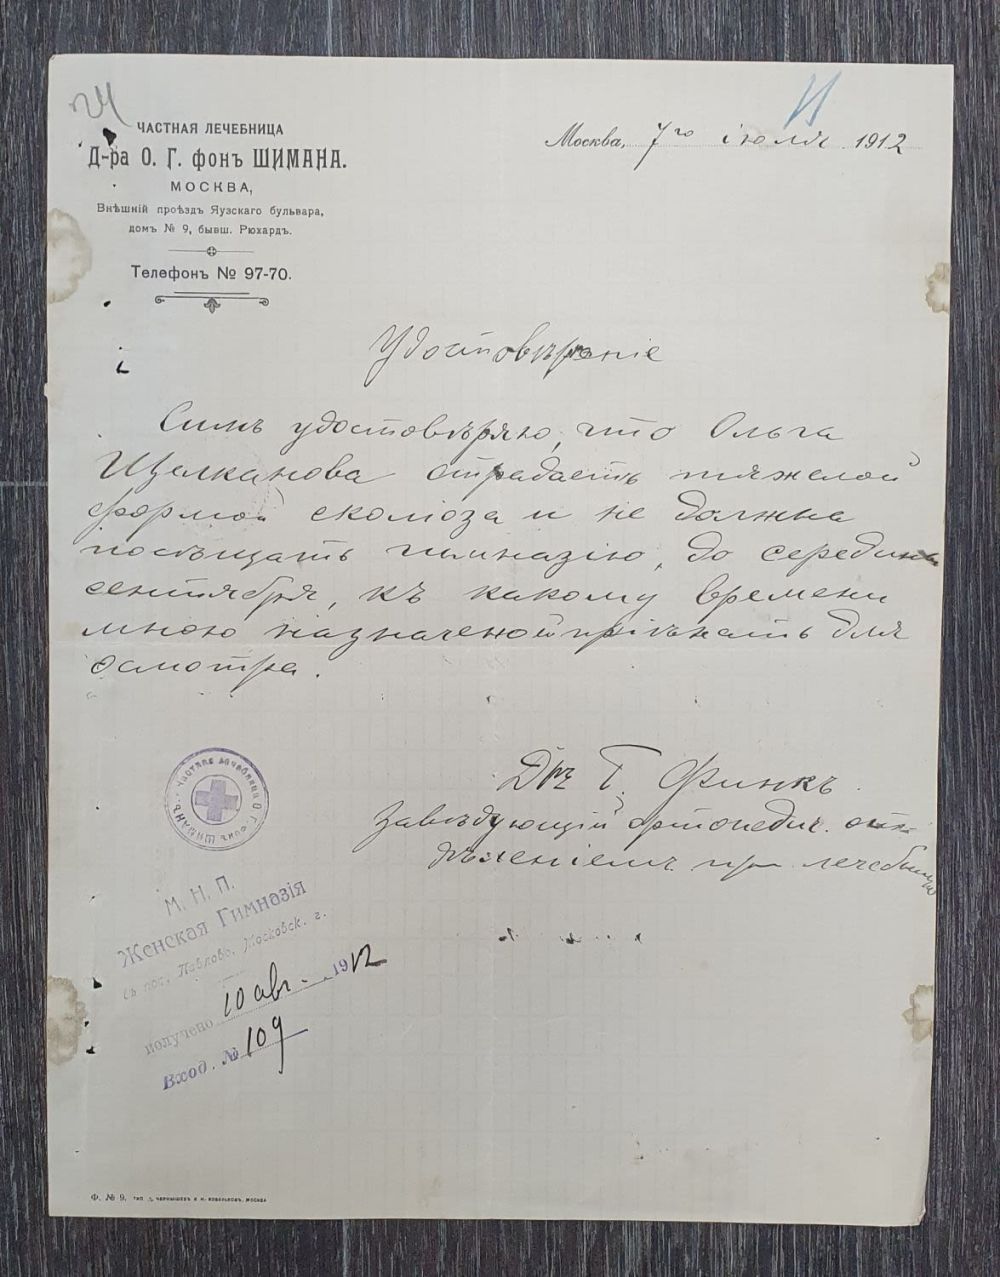 ЧАСТНАЯ ЛЕЧЕБНИЦА
Д-ра О. Г. фонъ ШИМАНА.
МОСКВА,
Внѣшній проѣздъ Яузскаго бульвара,
домъ № 9, бывш. Рюхардъ.
Телефонъ № 97-70.
Москва, 7го іюля 1912
Удостовѣреніе
Симъ удостовѣряю, что Ольга
Щелканова страдаетъ тяжелой
формой сколіоза и не должна
посѣщать гимназію, до середины
сентября, къ какому времени
мною назначеной пріѣхать для
осмотра.
Др Г. Финкъ
Завѣдующій ортопедич. от
дѣленіемъ при лечебницѣ
Частная лечебница О. Г. фонъ Шиманъ
М. Н. П.
Женская Гимназія
въ пос. Павлово, Московск. г.
получено 10 авг. 1912
Вход. № 109
Ф. № 9. ТИП. Д. ЧЕРНЫШЕВЪ И Н. КОБЕЛЬКОВЪ, МОСКВА